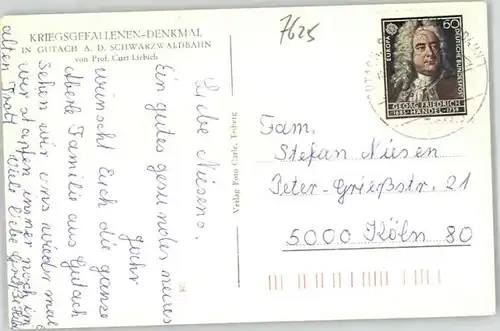 KRIEGSGEFALLENEN-DENKMAL
IN GUTACH A. D. SCHWARZWALDBAHN
von Prof. Curt Liebich
7625
Liebe Niesens,
Ein gutes gesundes neues
Jahr
wünscht Euch die ganze
Familie aus Gutach
sehen wir uns wieder mal
wir stapfen immer noch im
alten Trott
Viele liebe Grüße
Verlag Foto Carle, Triberg
EUROPA
60
DEUTSCHE BUNDESPOST
GEORG FRIEDRICH
1685 · HÄNDEL · 1759
Fam.
Stefan Niesen
Peter-Grießstr. 21
5000 Köln 80